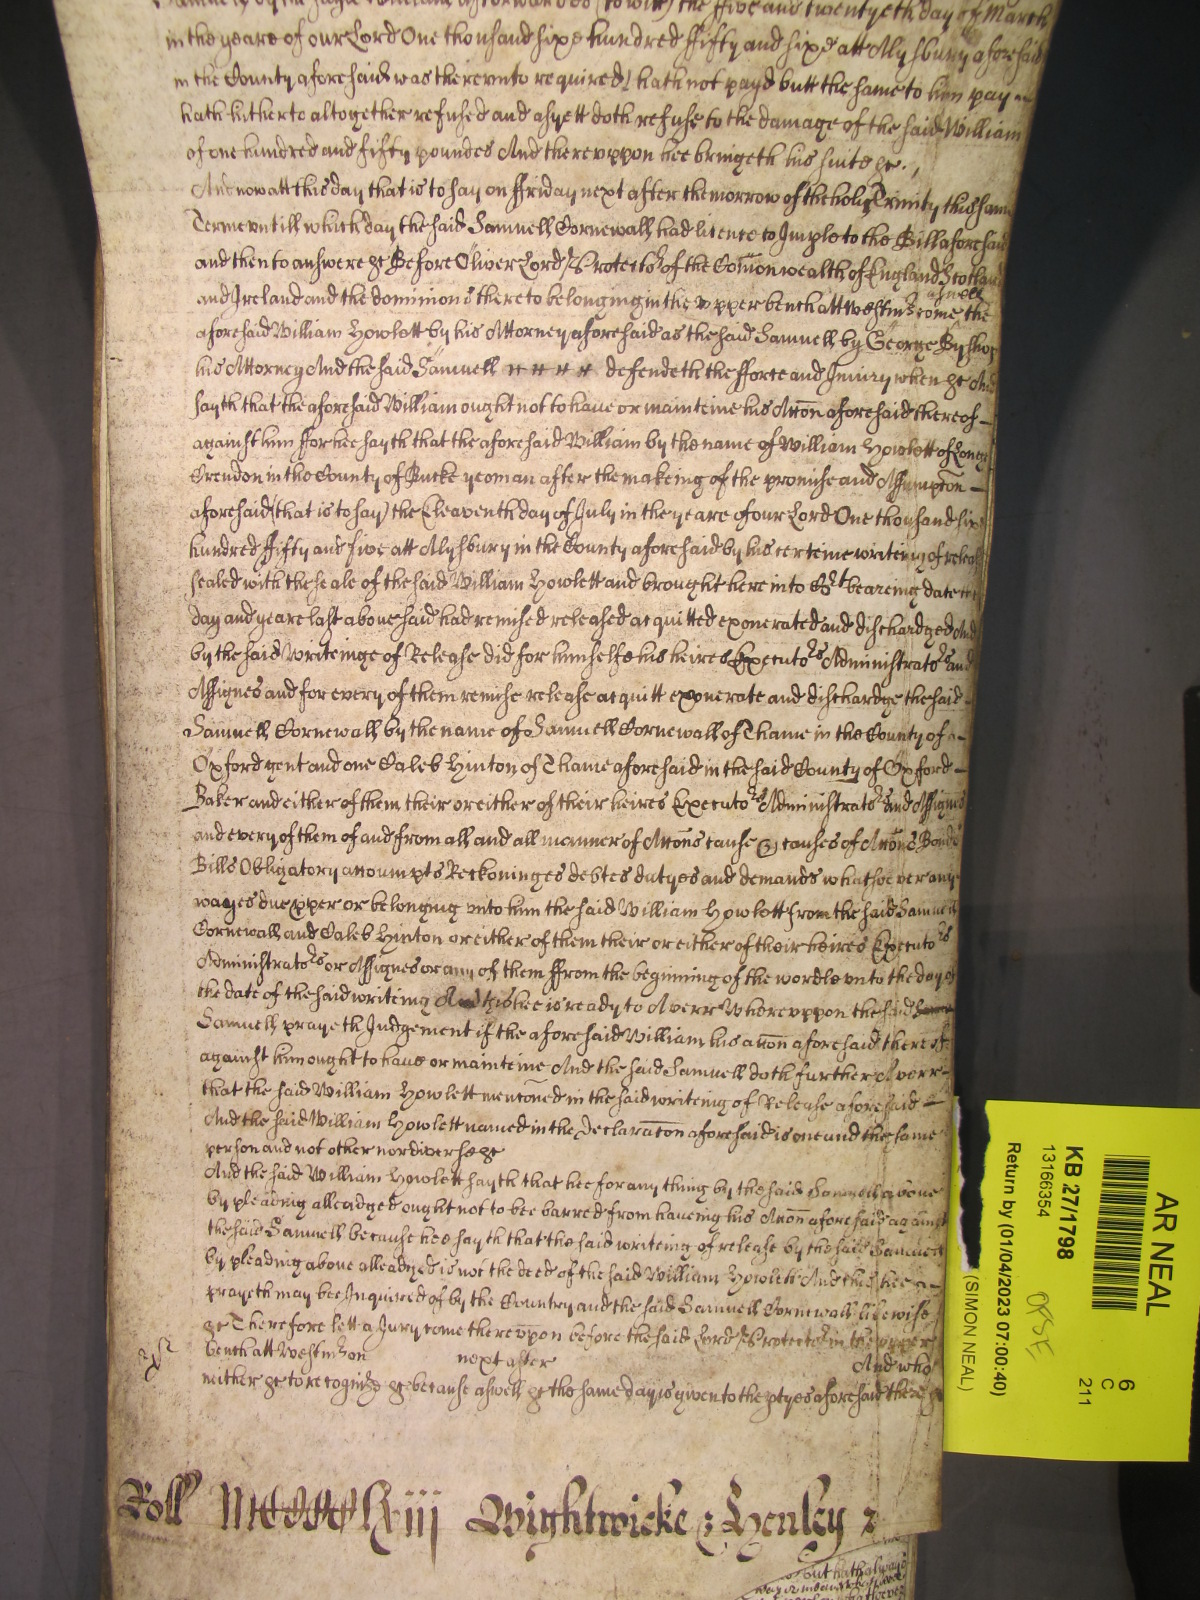 Samuell by the said William afterwardes (to witt) the five and twentyeth day of March
in the yeare of our Lord One thousand sixe hundred ffifty and sixe att Alysbury aforesaid
in the County aforesaid was therevnto required) hath not payd butt the same to him pay
hath hitherto altogether refused and as yett doth refuse to the damage of the said William
of one hundred and fifty poundes And therevppon hee bringeth his suite &c.
And now att this day that is to say on ffriday next after the morrow of the holy Trinity this same
Terme vntill which day the said Samuell Cornewall had licence to Imple to the Bill aforesaid
and then to answere &c Before Oliver Lord Protector of the Comonwealth of England Scotland
and Ireland and the dominions thereto belonging in the vpper bench att Westmr come aswell the
aforesaid William Howlett by his Attorney aforesaid as the said Samuell by George Byshop
his Attorney And the said Samuell defendeth the fforce and Iniury when &c And
sayth that the aforesaid William ought not to haue or mainteine his Accon aforesaid thereof
against him ffor hee sayth that the aforesaid William by the name of William Howlett of Long
Crendon in the County of Bucks yeoman after the makeing of the promise and Assumpcon
aforesaid (that is to say) the Eleaventh day of July in the yeare of our Lord One thousand six
hundred ffifty and five att Alysbury in the County aforesaid by his certeine writeing of release
sealed with the seale of the said William Howlett and brought here into Crt beareing date the
day and yeare last aboue said had remised released acquitted exonerated and dischardged And
by the said Writeinge of Release did for himselfe his heires Executors Administrators and
Assignes and for every of them remise release acquitt exonerate and dischardge the said
Samuell Cornewall by the name of Samuell Cornewall of Thame in the County of
Oxford gent and one Caleb Hinton of Thame aforesaid in the said County of Oxford
Baker and either of them their or either of their heires Executors Administrators and Assignes
and every of them of and from all and all manner of Accons cause & causes of Accons Bonds
Bills Obligatory accoumpts Reckoninges debtes dutyes and demands whatsoever any
wayes due vper or belonging vnto him the said William Howlett from the said Samuell
Cornewall and Caleb Hinton or either of them their or either of their heires Executors
Administrators or Assignes or any of them ffrom the beginning of the wordle vnto the day of
the date of the said writeing And this hee is ready to Averr Wherevppon the said
Samuell prayeth Judgement if the aforesaid William his accon aforesaid thereof
against him ought to haue or mainteine And the said Samuell doth further Averr
that the said William Howlett mentoned in the said writeing of Release aforesaid
And the said William Howlett named in the Declaracon aforesaid is one and the same
person and not other nor diverse &c
And the said William Howlett sayth that hee for any thing by the said Samuell aboue
by pleading alleadged ought not to bee barred from haueing his Accon aforesaid against
the said Samuell because hee sayth that the said writeing of release by the said Samuell
by pleading aboue alleadged is not the deed of the said William Howlett And this hee
prayeth may bee Inquired of by the Country and the said Samuell Cornewall likewise
&c Therefore lett a Jury come therevpon before the said Lord Protector in the vpper
bench att Westmr on next after And who
neither &c to recognize &c because aswell &c the same day is given to the ptyes aforesaid there &c
Roll MCCCCLxiii Wightwicke : Henley
AR NEAL
6
C
211
KB 27/1798
13166354
Return by (01/04/2023 07:00:40)
(SIMON NEAL)